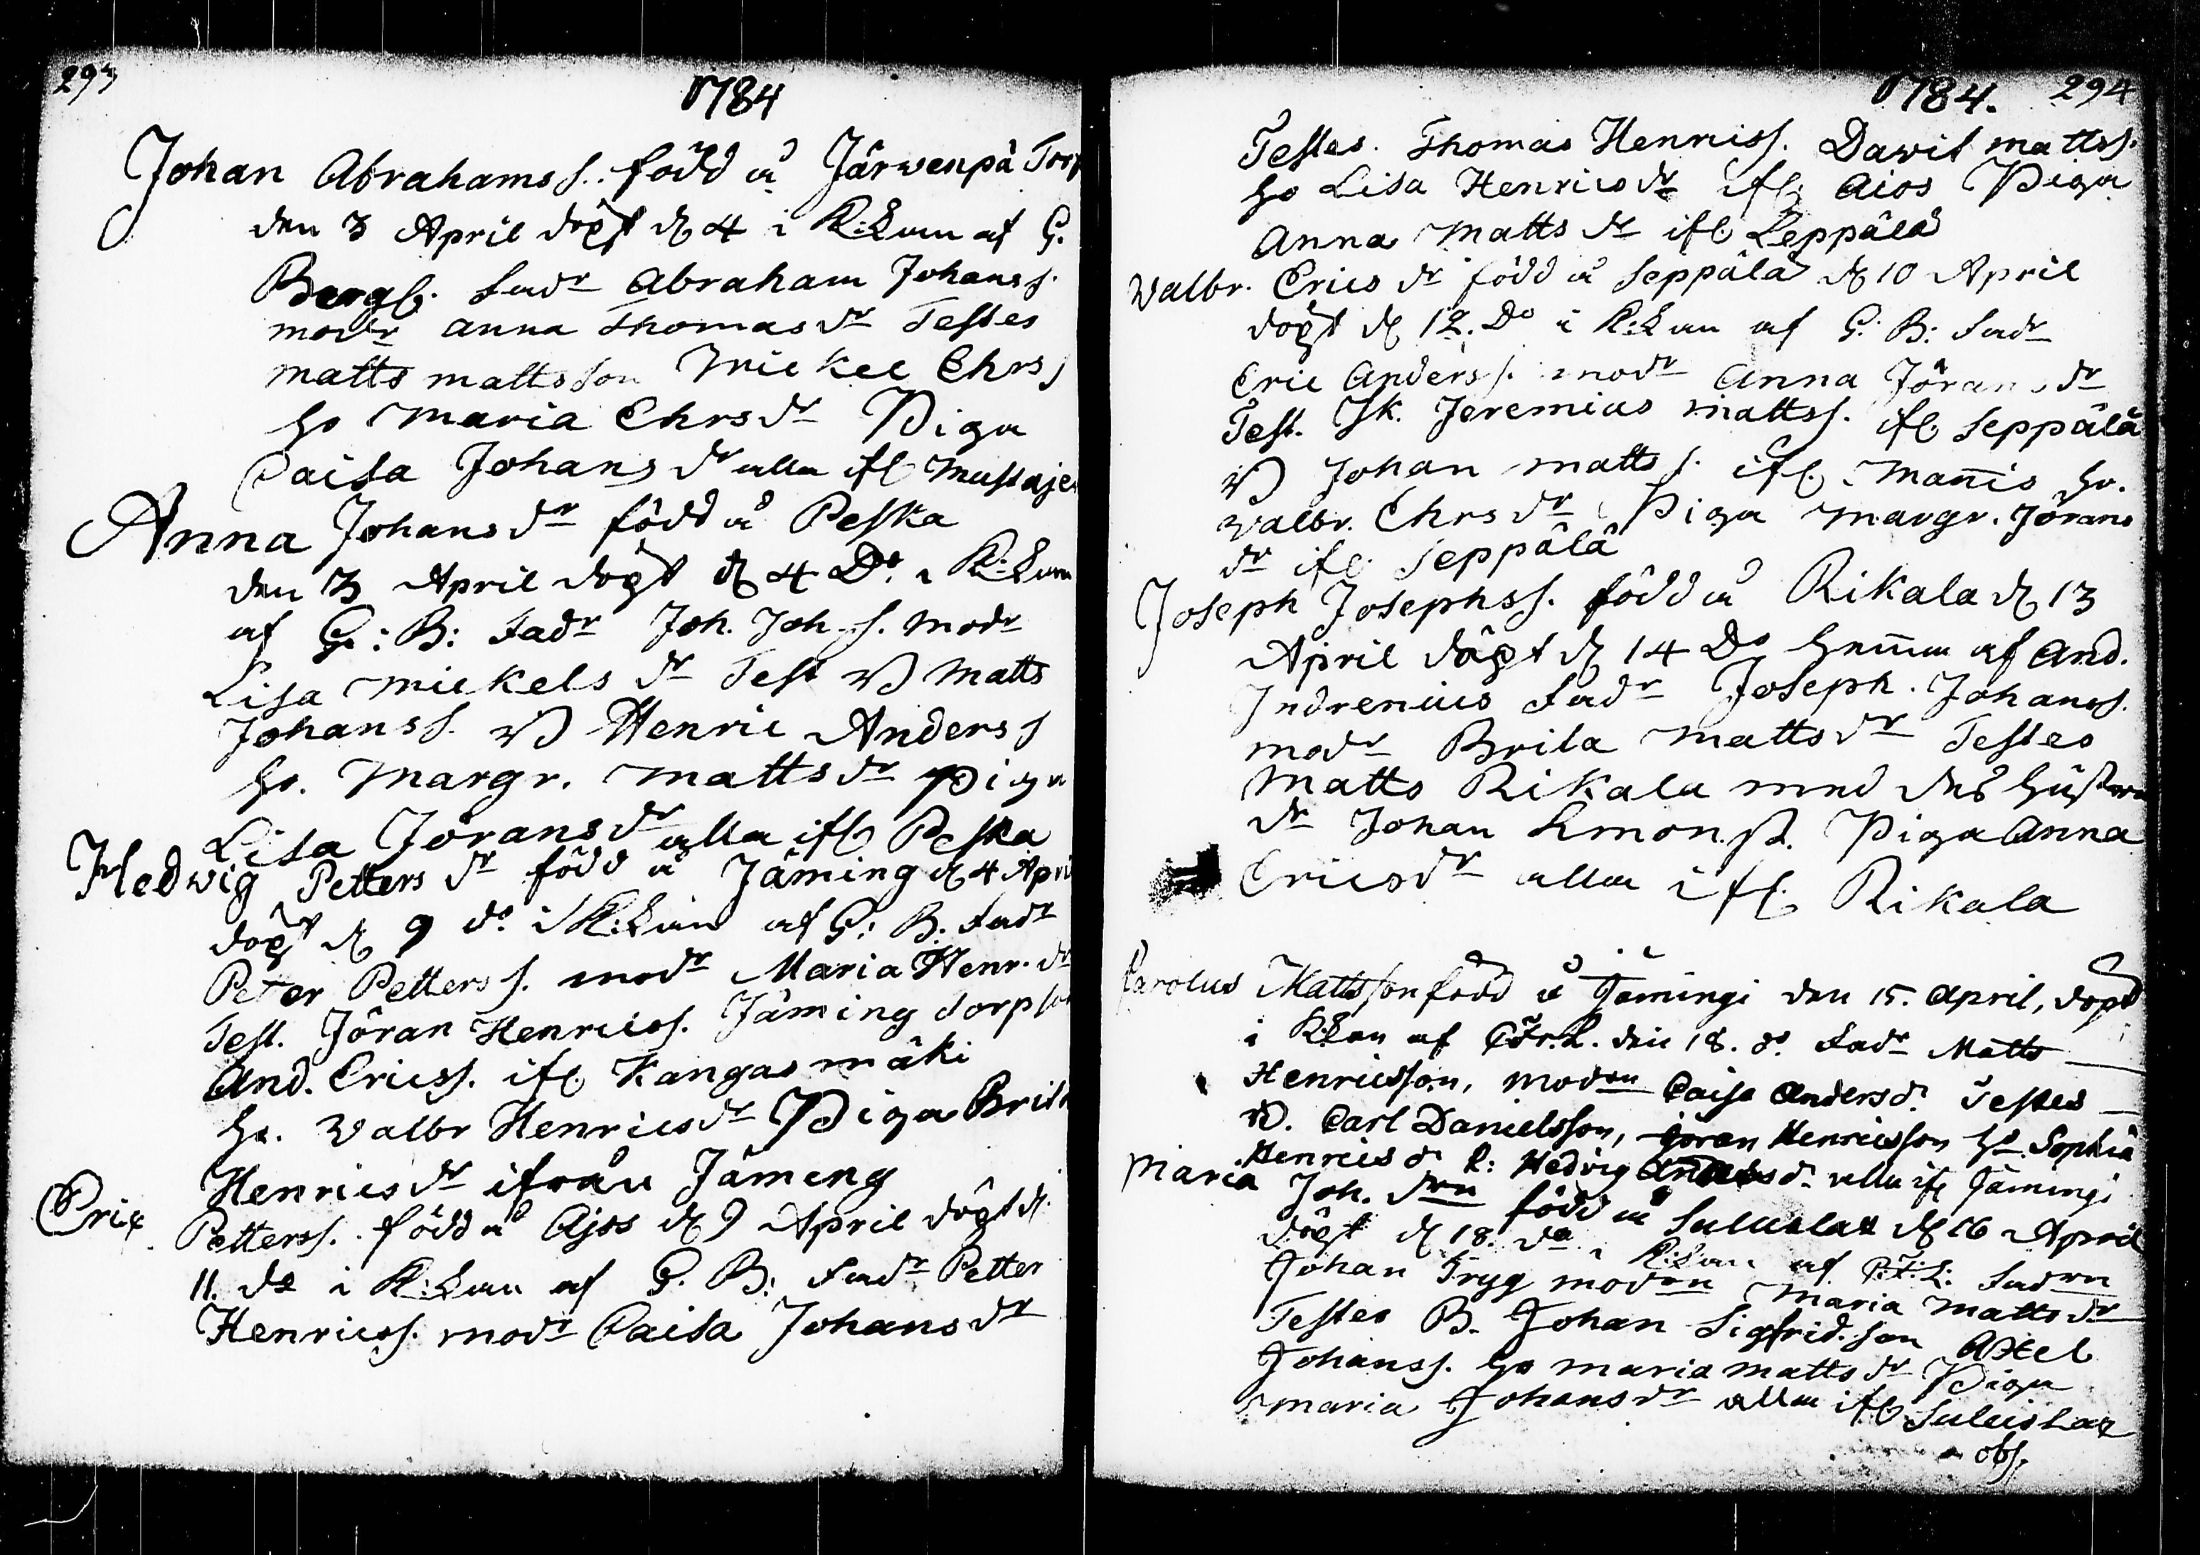 293
1784
Johan Abrahamss. född å Järwenpä Torp
den 3 April döpt d 4 i K:Lan af G.
Bergh. Fadr Abraham Johanss.
modr Anna Thomasdr Testes
matts mattsson Mickel Chrs
Ho Maria Chrsdr Piga
Caisa Johansdr alla ifl Mustaje
Anna Johansdr född å Peska
den 3 April döpt d 4 Do. i K:Lan
af G: B: Fadr Joh. Joh.s. modr
Lisa Mickelsdr Test D matts
Johanss. D Henric Anderss
Ho. Margr. mattsdr Piga
Lisa Joransdr alla ifl Peska
Hedwig Pettersdr född å Jäming d 4 Apri
döpt d 9 do. i K:Lan af G: B: Fadr
Peter Petterss. modr Maria Henr. dr
Test. Jöran Henricss. Jäming Torp
And. Ericss. ifl Kangasmäki
Ho. Walbr Henricsdr Piga Brita
Henricsdr ifrån Jämeng
Eric Petterss. född å Ajos d 9 April döpt d.
11. do i K:Lan af G. B: Fadr Petter
Henricss. modr Caisa Johansdr
1784. 294
Testes. Thomas Henricss. Dawit mattss.
Ho Lisa Henricsdr ifl Aios Piga
Anna Mattsdr ifl. Leppälä
Walbr. Ericsdr född å Seppälä d 10 April
döpt d 12. Do i K:Lan af G. B: Fadr
Eric Anderss. modr Anna Jöransdr
Test. Jk. Jeremias mattss. ifl Seppälä
D Johan mattss. ifl. Mannis Ho.
Walbr. Chrsdr Piga Margr. Jörans
dr ifl. Seppälä
Joseph Josephss. född å Rikala d 13
April döpt d 14 Do hemma af And.
Indrenius Fadr Joseph. Johanss.
modr Brita Mattsdr Testes
Matts Rikala med des hustru
dr Johan Simon. Piga Anna
Ericsdr alla ifl. Rikala
Carolus Mattsson född å Jämingi den 15. April, döpt
i K:Lan af C.Fr.L. den 18. do. Fadr Matts
Henricsson, modren Caisa Andersd. Testes
D. Carl Danielsson, Göran Henricsson Ho. Sophia
Henricsd. P: Hedvig Andersd. alla ifl Jämingi
Maria Joh. drn född å Suluslax d 16 April
döpt d 18. do i K:Lan af C.F.L: Fadren
Johan Tryg modren Maria Mattsdr
Testes B. Johan Sigfridson Axel
Johanss. Ho Maria Mattsdr Piga
Maria Johansdr alla ifl. Suluslax
obs.